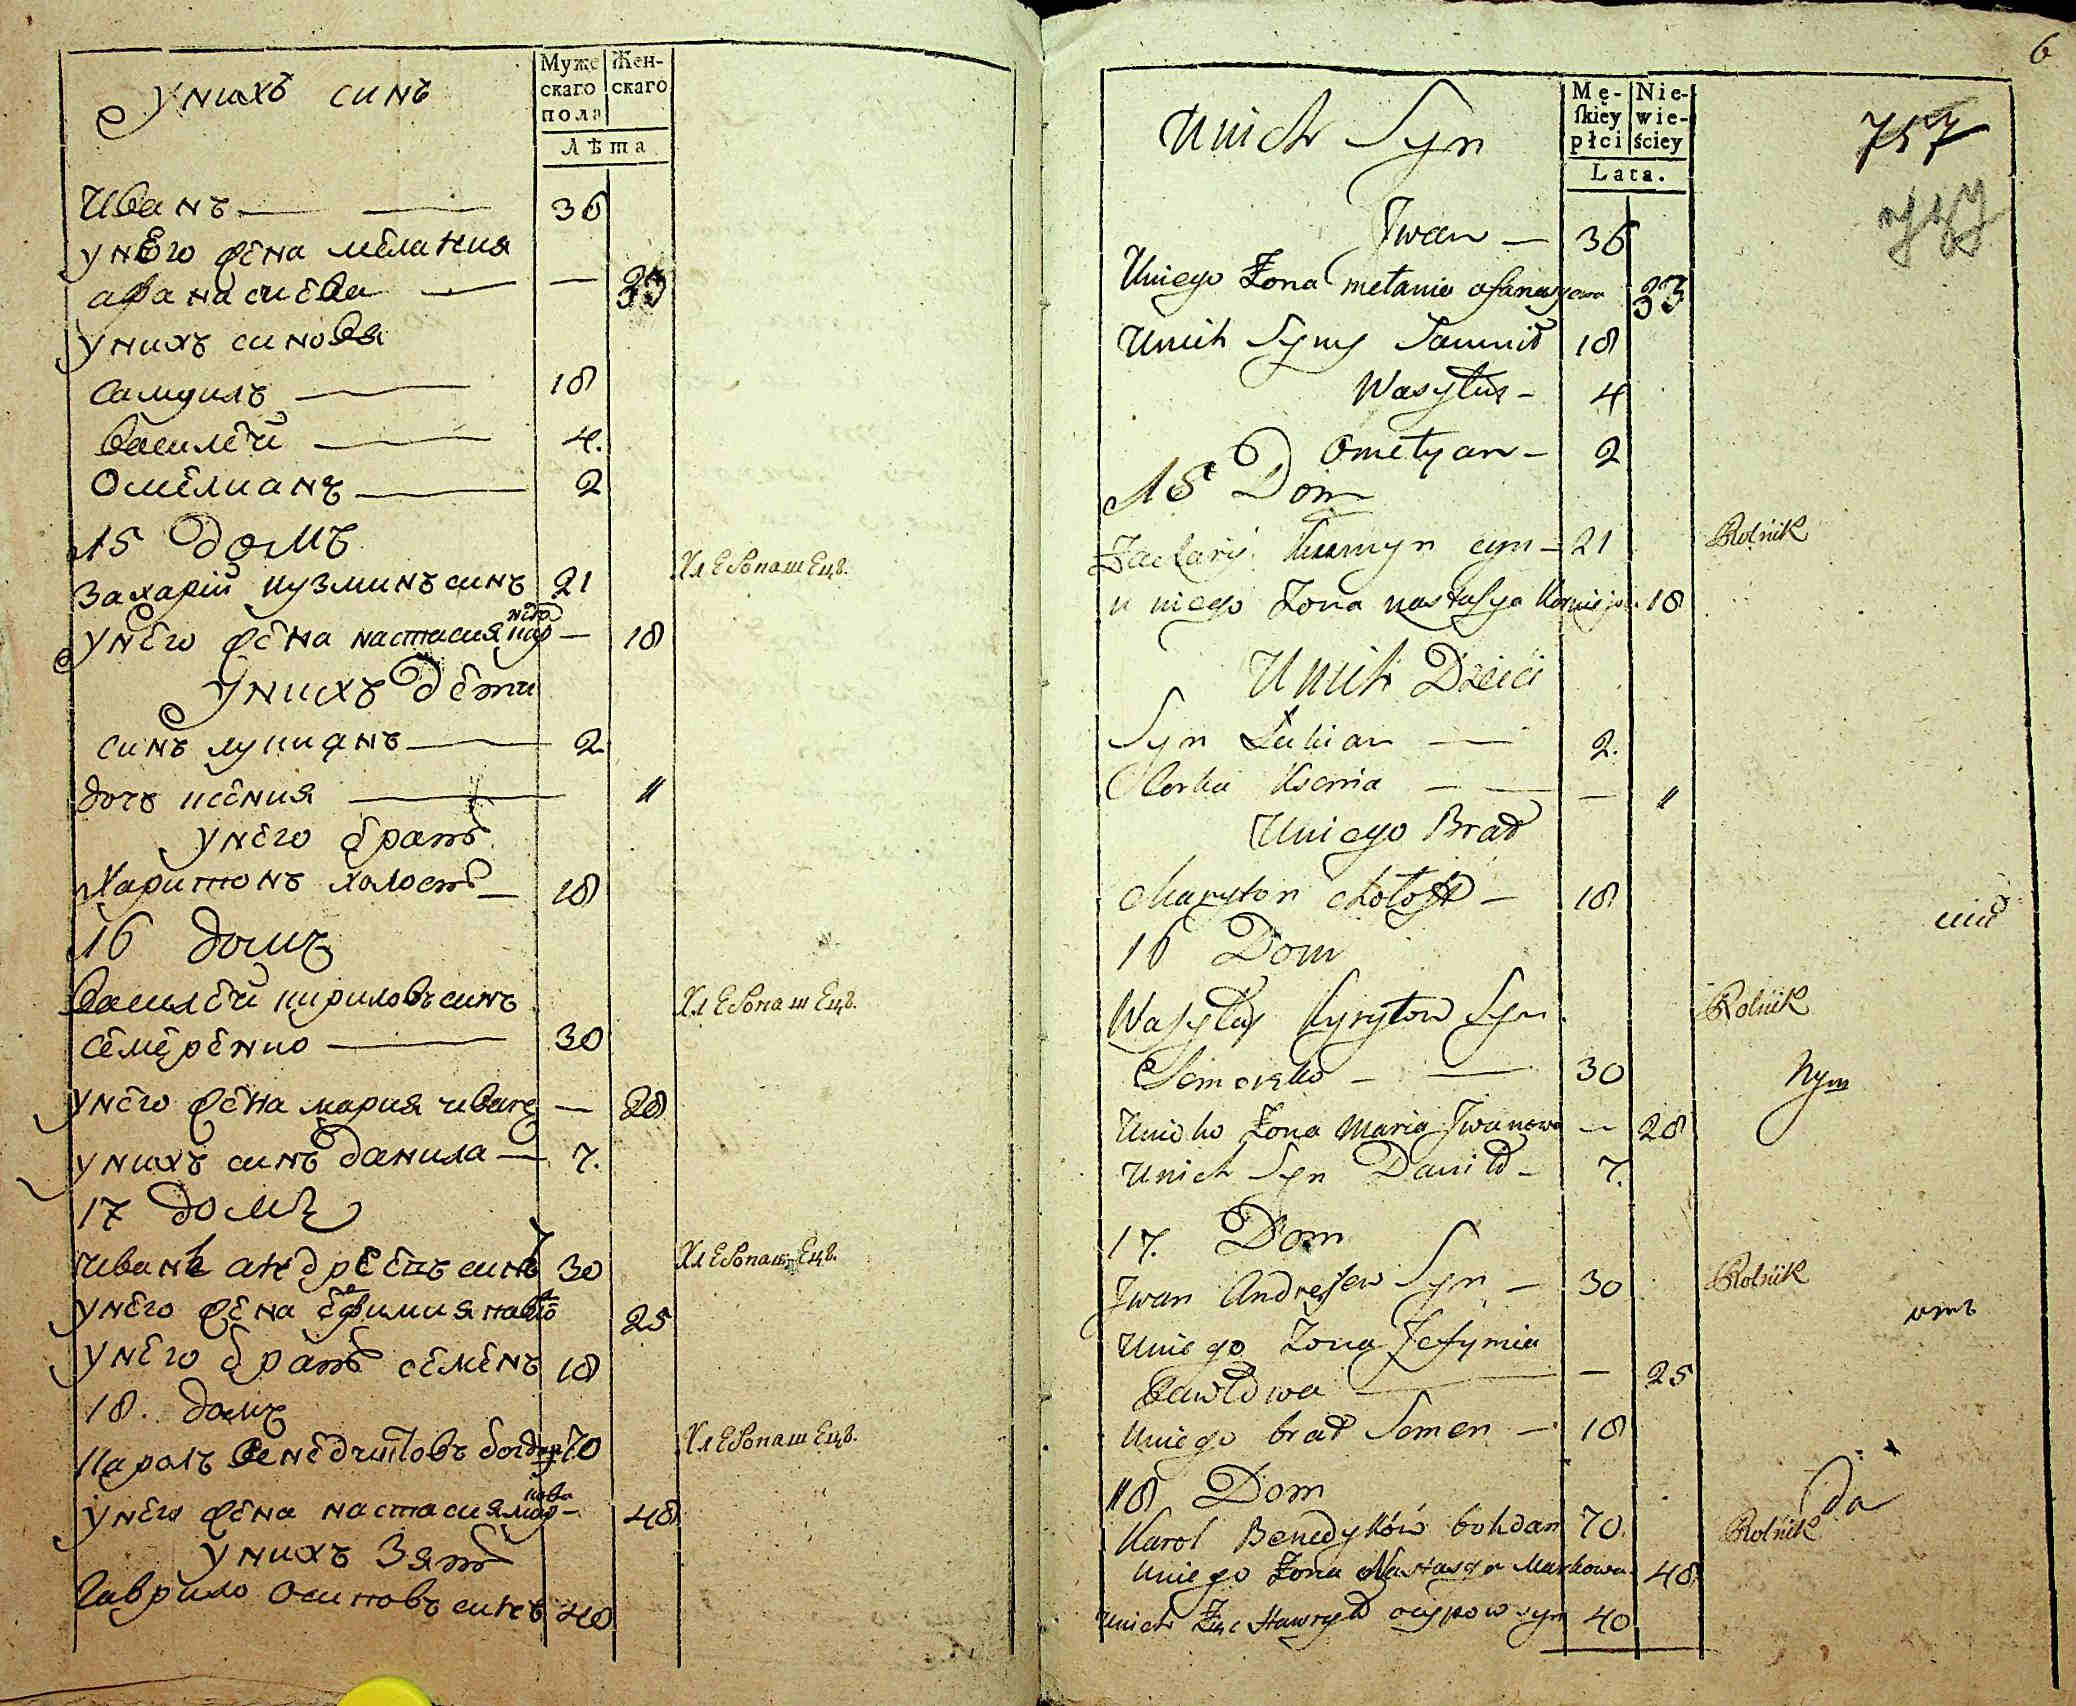 Муже Жен-
скаго скаго
пола
Лѣта
Унихъ синъ
Иванъ — — 36
унего жена мелания
афанасиева — — 33
унихъ синовя
самуилъ — 18
василей — 4.
Омелианъ — 2
15 домъ
Захарій кузминъ синъ 21 Хлебопашецъ.
унего жена настасия кор — 18
Унихъ дети
синъ лукиянъ — 2
дочъ ксения — "
унего братъ
Харитонъ холостъ — 18
16 домъ
василей кириловъ синъ Хлебопашецъ.
семеренко — 30
унего жена мария иване — 28
унихъ синъ данила — 7.
17 домъ
иванъ андреевъ синъ 30 Хлебопашецъ.
унего жена ефимия павло 25
унего братъ семенъ 18
18. домъ
Кароль венедиктовъ богдан 70 Хлебопашецъ.
унего жена настасия маркова — 48
унихъ Зять
Гаврило осиповъ синъ 40
6
Mę- Nie-
skiey wie-
płci ściey
Lata.
757
Unich Syn
Jwan — 36
Uniego Żona mełania afanasjewa 33
Unich Syny Samuił 18
Wasyluy — 4
Omelyan — 2
15 Dom
Zachariy Kuzmyn syn — 21 Rolnik
u niego Żona nastasya Korniejow. 18
Unich Dzieci
Syn Łukian — 2.
Corka Ksenia — — — "
Uniego Brat
Charyton chołost — 18
16 Dom
Wasyluy Kyryłow Syn Rolnik
Semerenko — — 30
Unieho Żona Maria Jwanowa — 28
Unich Syn Daniło — 7.
17. Dom
Jwan Andrejew Syn — 30 Rolnik
Uniego Żona Jefymia
Pawłowa — — 25
Uniego brat Semen — 18
18 Dom
Karol Benedyktów bohdan 70 Rolnik
Uniego Żona Nastasya Markowa. 48
Unich Zięć Hawryło osypow syn 40